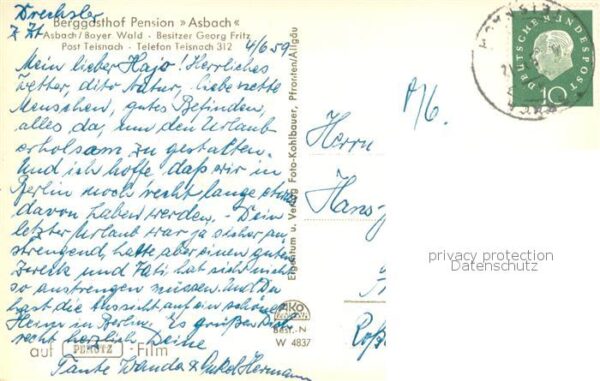 Drechsler
z. Zt.
Berggasthof Pension »Asbach«
Asbach/Bayer Wald - Besitzer Georg Fritz
Post Teisnach - Telefon Teisnach 312
4/6 59
Mein lieber Hajo! Herrliches
Wetter, dito Natur, liebe nette
Menschen, gutes Befinden,
alles da, um den Urlaub
erholsam zu gestalten.
Und ich hoffe daß wir in
Berlin noch recht lange etwas
davon haben werden. - Dein
letzter Urlaub war ja sicher an
strengend, hatte aber einen guten
Zweck und Vati hat sich nicht
so anstrengen müssen. Und Du
hast die Aussicht auf ein schönes
Heim in Berlin. Es grüßen Dich
recht herzlich Deine
Tante Wanda & Onkel Hermann
auf PERUTZ - Film
Eigentum u. Verlag Foto-Kohlbauer, Pfronten/Allgäu
AKO
Best. N
W 4837
Herrn
Hans-
Roß
DEUTSCHE BUNDESPOST
10
privacy protection
Datenschutz